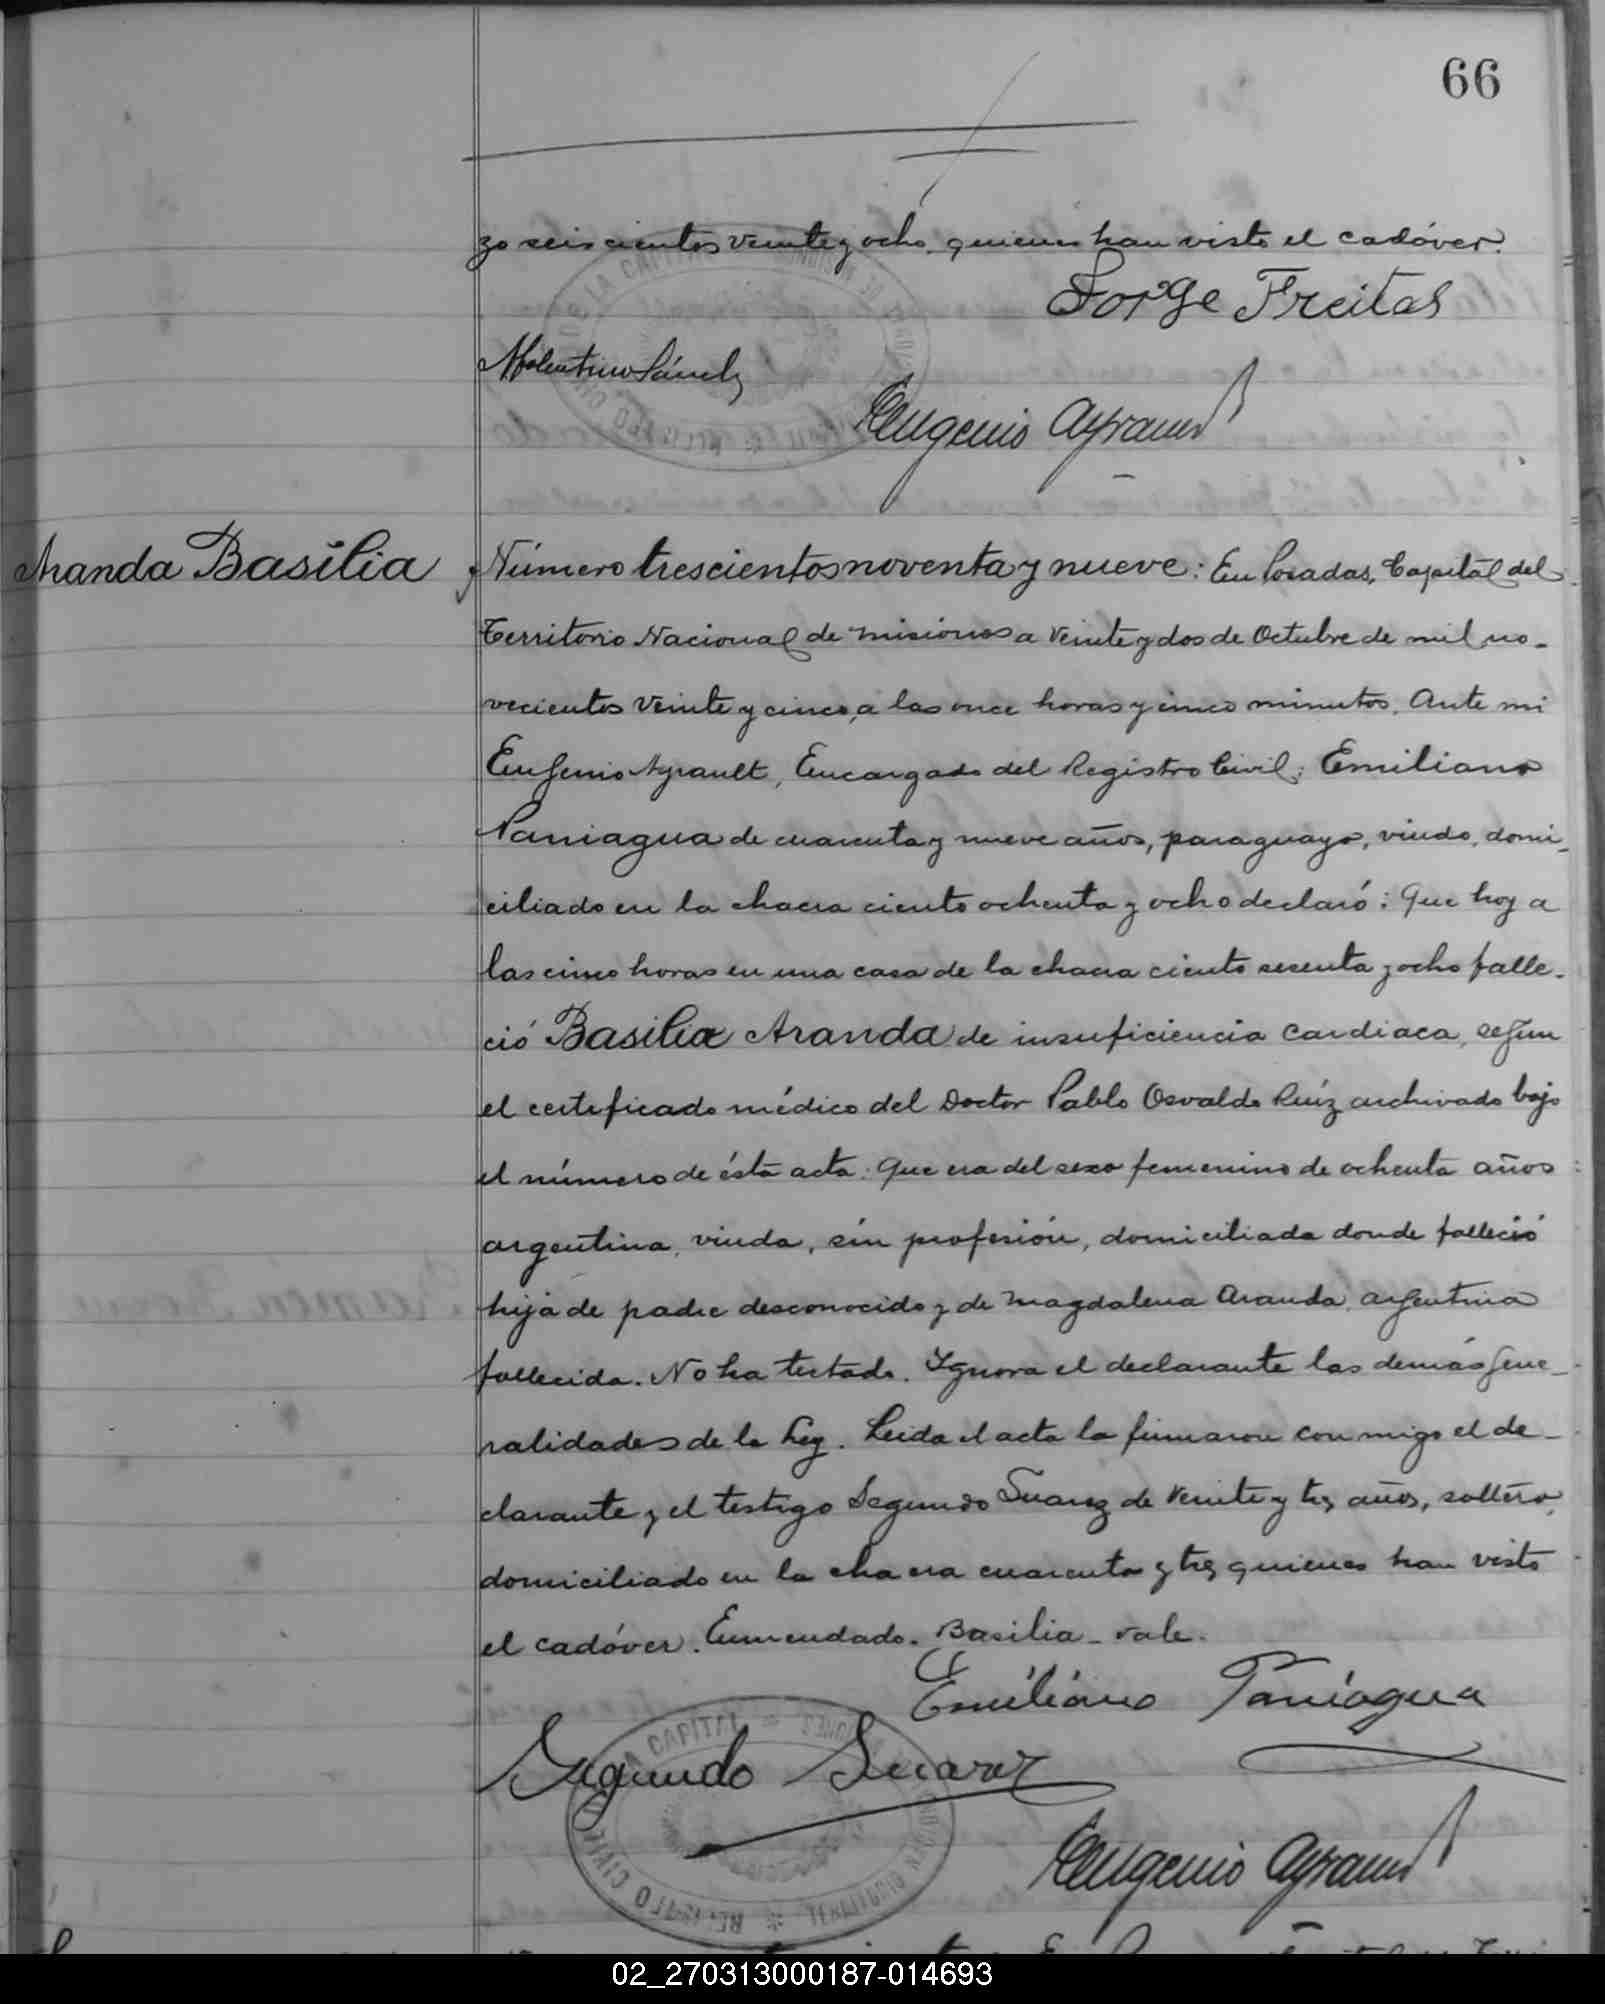 66
zo seiscientos veinte y ocho quienes han visto el cadáver.
Jorge Freitas
Sánchez
Eugenio Ayrault
Aranda Basilia
Número trescientos noventa y nueve: En Posadas, Capital del
Territorio Nacional de Misiones a veinte y dos de Octubre de mil no-
vecientos veinte y cinco, a las once horas y cinco minutos. Ante mi
Eugenio Ayrault, Encargado del Registro Civil; Emiliano
Paniagua de cuarenta y nueve años, paraguayo, viudo, domi-
ciliado en la chacra ciento ochenta y ocho declaró: Que hoy a
las cinco horas en una casa de la chacra ciento sesenta y ocho falle-
ció Basilia Aranda de insuficiencia cardiaca, segun
el certificado médico del Doctor Pablo Osvaldo Ruíz archivado bajo
el número de ésta acta: Que era del sexo femenino de ochenta años
argentina, viuda, sin profesión, domiciliada donde falleció
hija de padre desconocido y de Magdalena Aranda, argentina
fallecida. No ha testado. Ignora el declarante las demás gene-
ralidades de la Ley. Leida el acta la firmaron conmigo el de-
clarante y el testigo Segundo Suarez de veinte y tres años, soltero,
domiciliado en la chacra cuarenta y tres quienes han visto
el cadáver. Enmendado. Basilia - vale.
Emiliano Paniagua
Segundo Suarez
REGISTRO CIVIL DE LA CAPITAL
Eugenio Ayrault
02_270313000187-014693